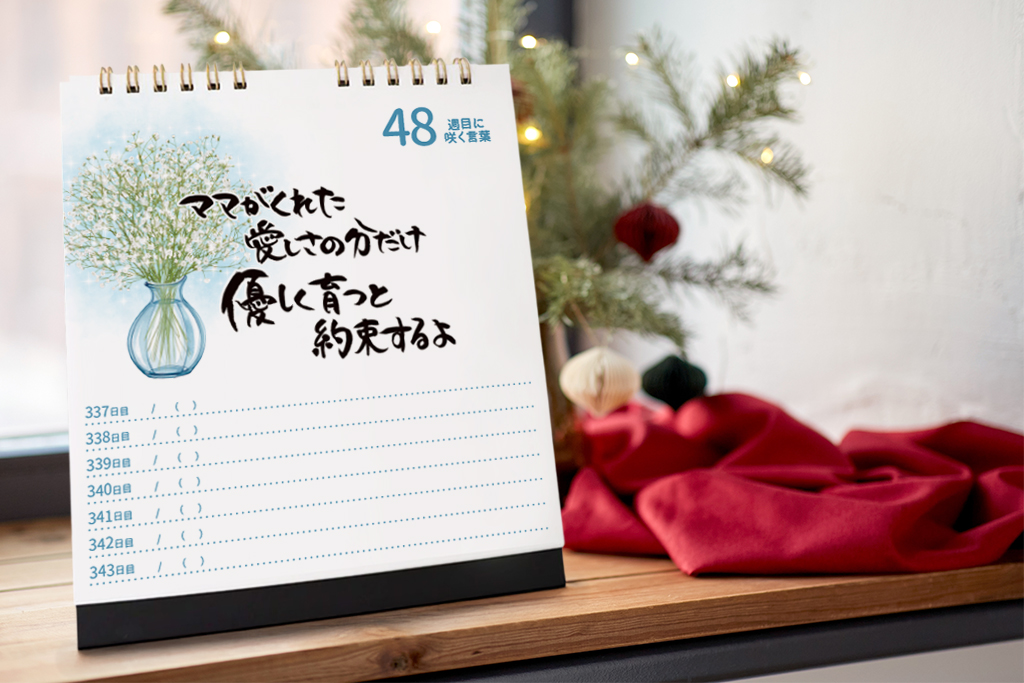 48 週目に
咲く言葉
ママがくれた
愛しさの分だけ
優しく育つと
約束するよ
337日目 / ( )
338日目 / ( )
339日目 / ( )
340日目 / ( )
341日目 / ( )
342日目 / ( )
343日目 / ( )